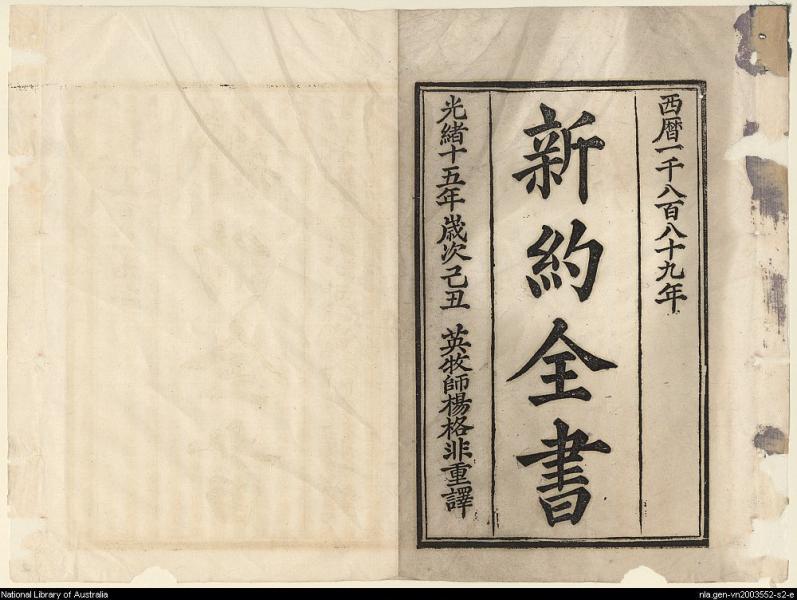 西暦一千八百八十九年
新約全書
光緒十五年歲次己丑 英牧師楊格非重譯
National Library of Australia
nla.gen-vn2003552-s2-e